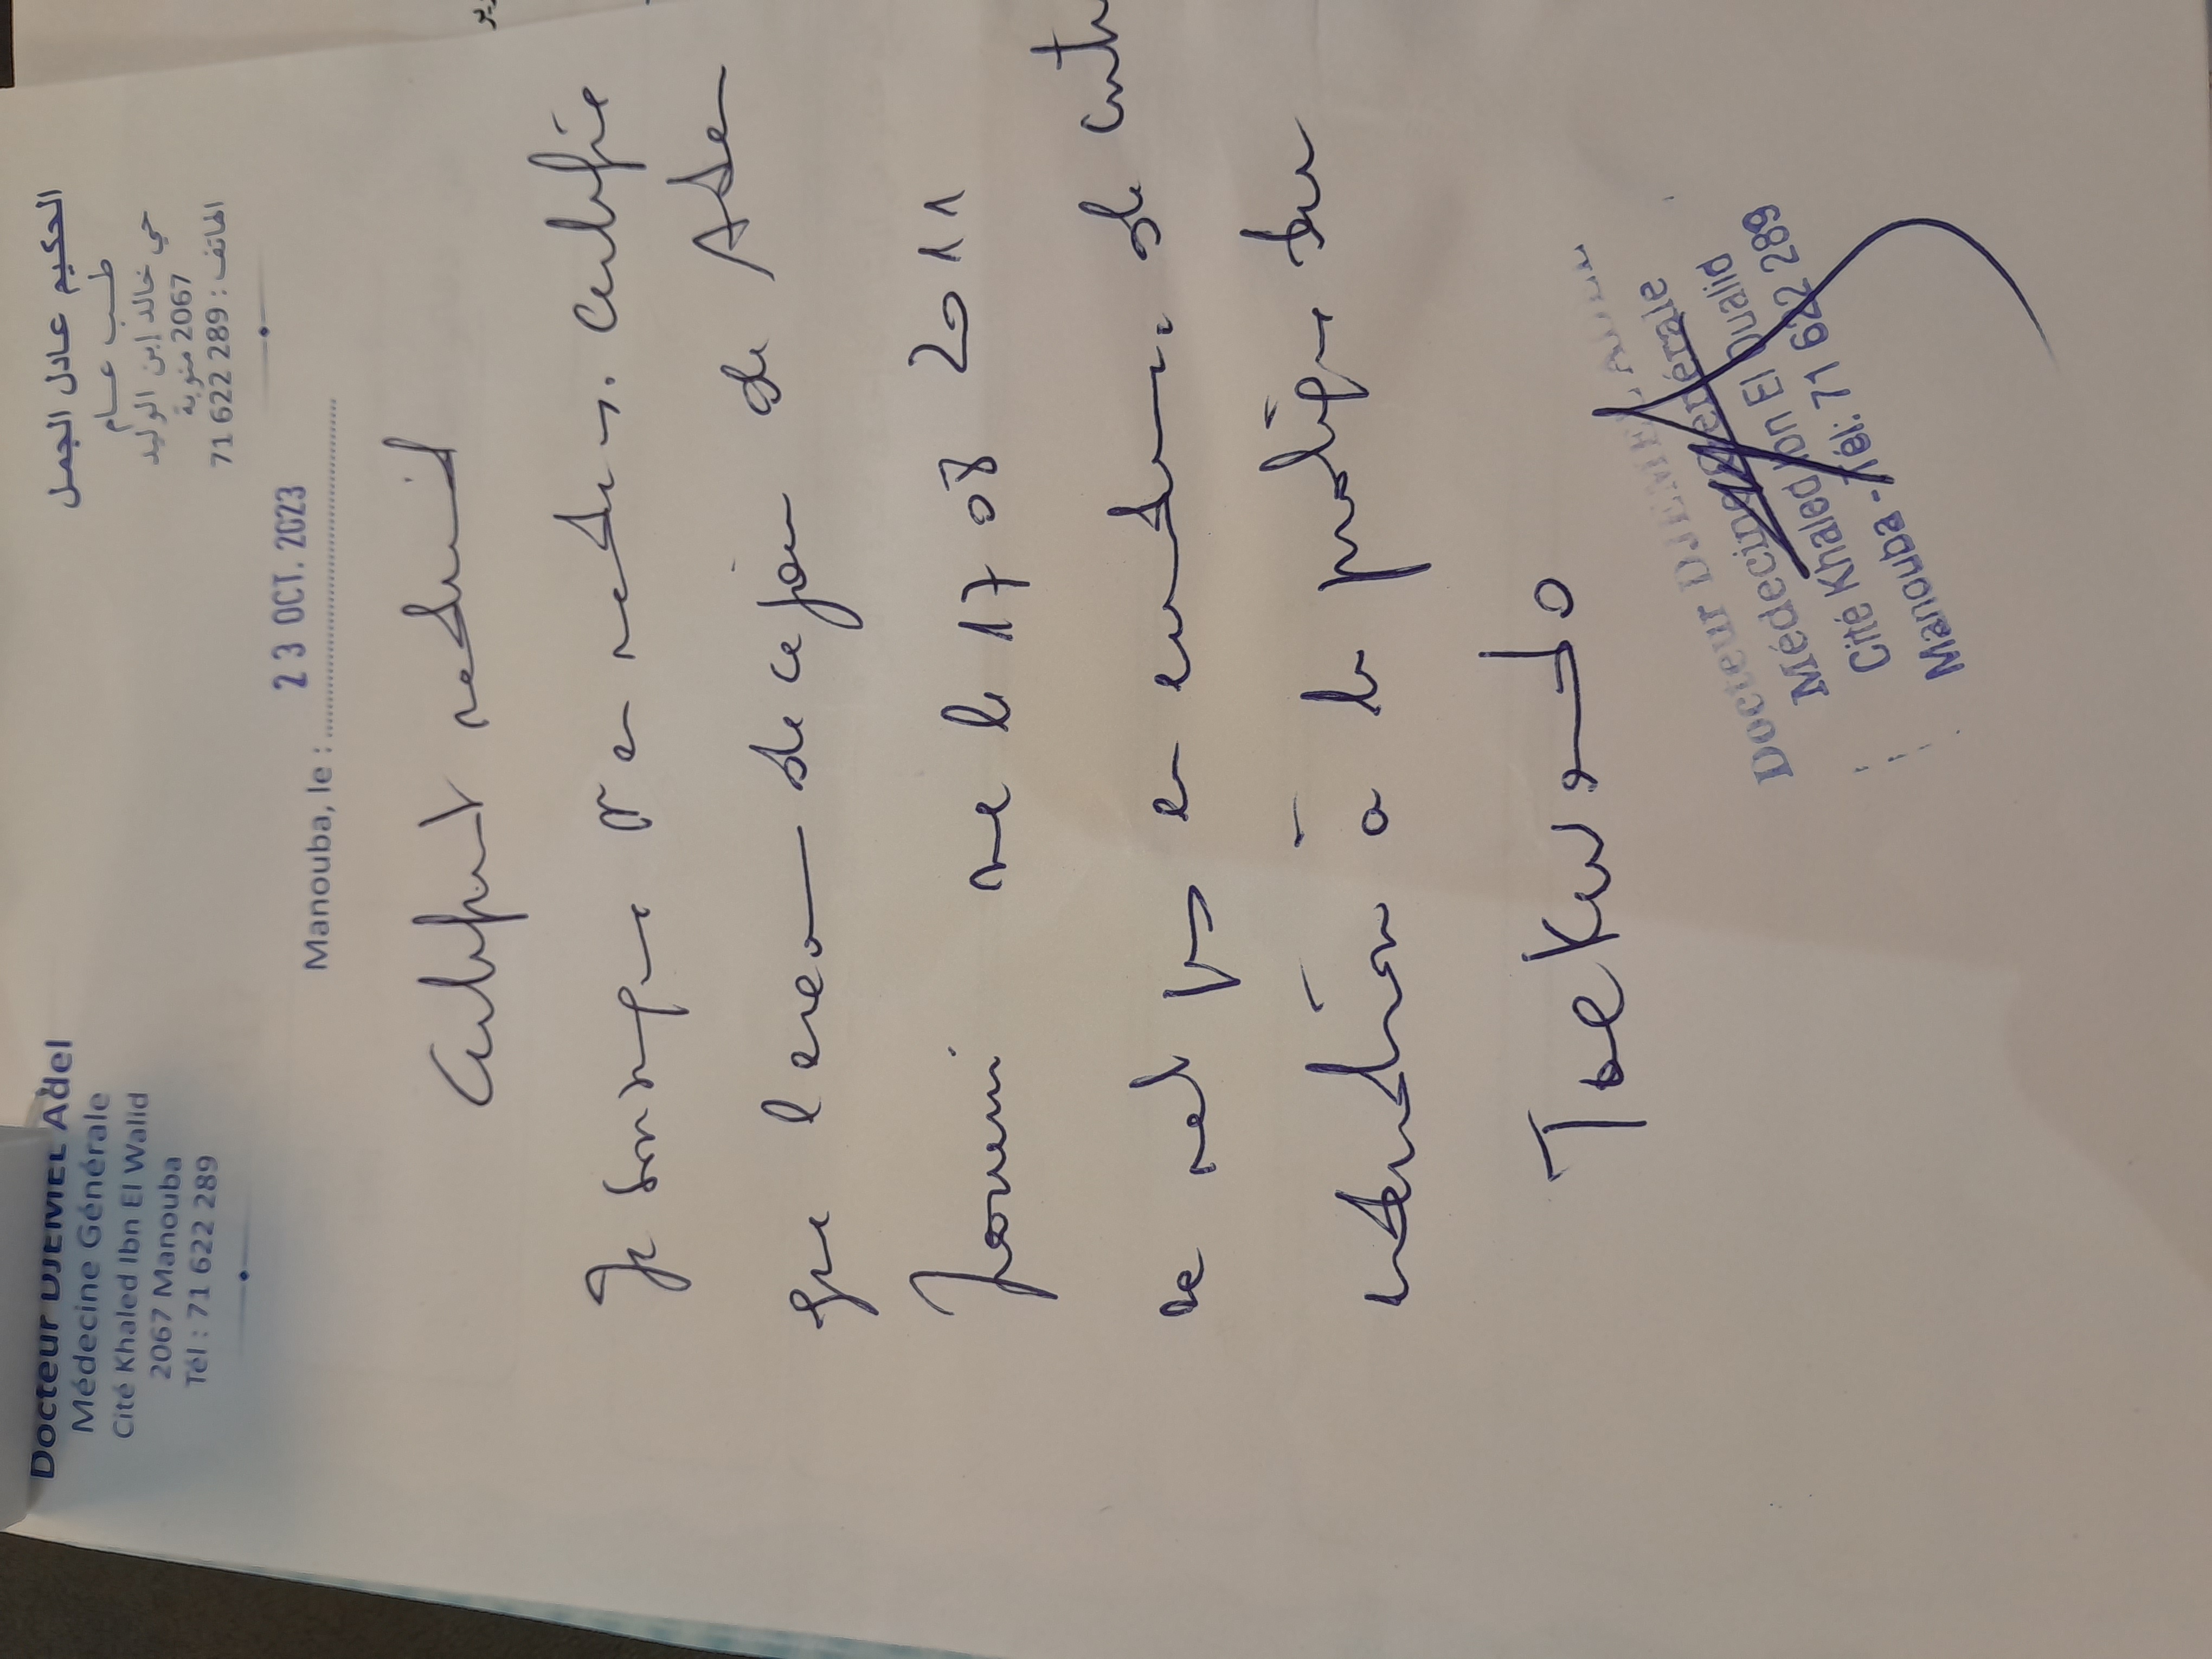 Docteur DJEMEL Adel
Médecine Générale
Cité Khaled Ibn El Walid
2067 Manouba
Tél : 71 622 289
الحكيم عادل الجمل
طب عام
حي خالد إبن الوليد
2067 منوبة
الهاتف : 71 622 289
Manouba, le : 23 OCT. 2023
Certificat médical
Je soussigné en médecine certifie
que l'examen de ce jour de
né le 17 08 2011
ne de contre
indication à la pratique du
Taekwondo
Docteur DJEMEL
Médecine Générale
Cité Khaled Ibn El Oualid
Manouba - Tél: 71 622 289